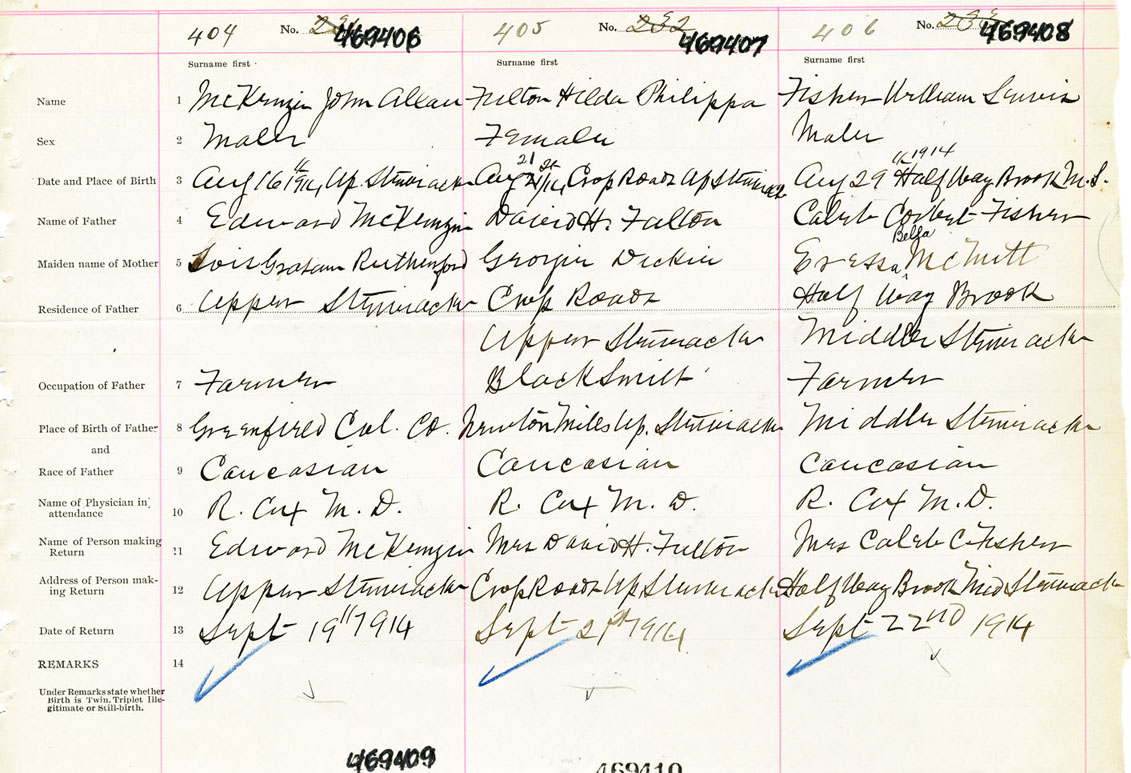 404 No. 469406 405 No. 232 469407 406 No. 233 469408
Surname first Surname first Surname first
Name 1 McKenzie John Allan Fulton Hilda Philippa Fisher William Lewis
Sex 2 Male Female Male
21 th 1914
Date and Place of Birth 3 Aug 16th 1914, Up. Stewiacke Aug 21st /14, Crop Roads Up Stewiacke Aug 29 Half Way Brook M.S.
Name of Father 4 Edward McKenzie David H. Fulton Caleb Corbet Fisher
Bella
Maiden name of Mother 5 Lois Graham Rutherford Georgie Dickie Eressa McNutt
Residence of Father 6 Upper Stewiacke Crop Roads Half Way Brook
Upper Stewiacke Middle Stewiacke
Occupation of Father 7 Farmer BlackSmith Farmer
Place of Birth of Father 8 Greenfield Col. Co. Newton Mills Up. Stewiacke Middle Stewiacke
and
Race of Father 9 Caucasian Caucasian Caucasian
Name of Physician in attendance 10 R. Cox M.D. R. Cox M.D. R. Cox M.D.
Name of Person making Return 11 Edward McKenzie Mrs David H. Fulton Mrs Caleb C. Fisher
Address of Person making Return 12 Upper Stewiacke Crop Roads Up Stewiacke Half Way Brook Mid Stewiacke
Date of Return 13 Sept 19th 1914 Sept 21st 1914 Sept 22nd 1914
REMARKS 14
Under Remarks state whether
Birth is Twin, Triplet Ille-
gitimate or Still-birth.
469409 469410